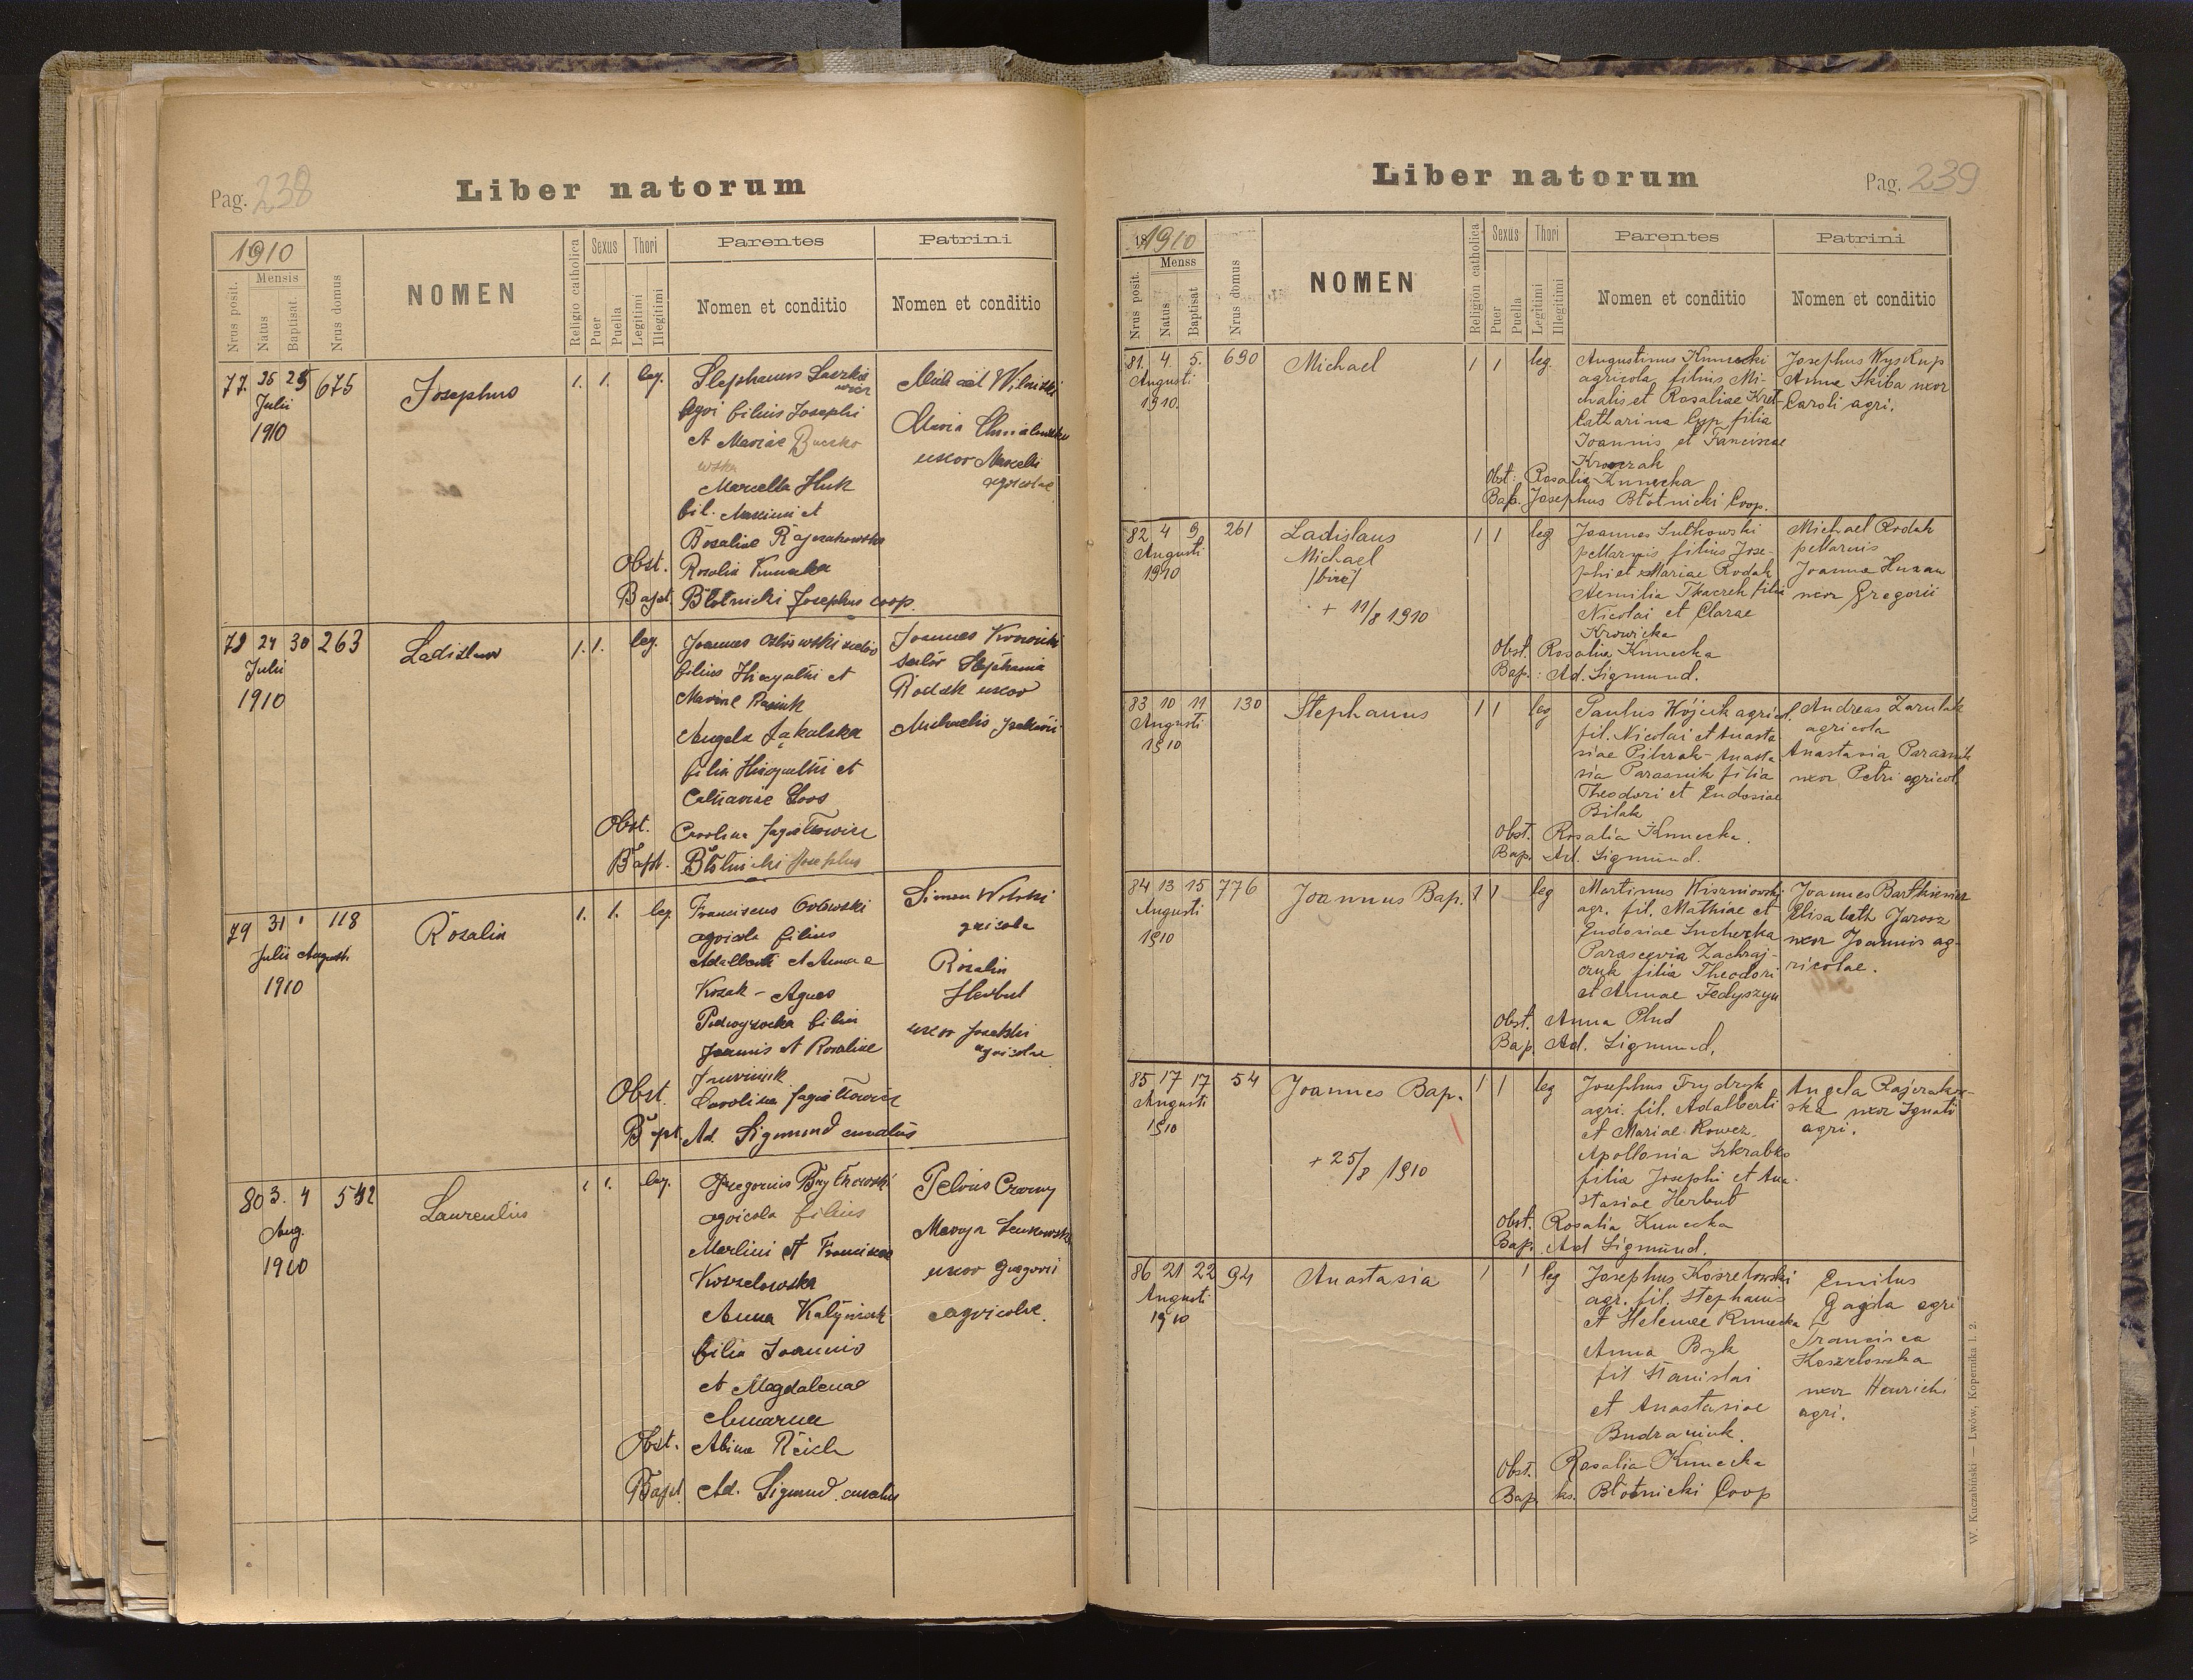 Pag. 238
Liber natorum
1910
Mensis
Nrus posit.
Natus
Baptisat.
Nrus domus
NOMEN
Religio catholica
Sexus
Puer
Puella
Thori
Legitimi
Illegitimi
Parentes
Nomen et conditio
Patrini
Nomen et conditio
77. 25 675
Julii
1910
Josephus
1. 1. leg.
Stephanus
agri filius Josephi
et Mariae Buczko
wska
Marcella Huk
fil. Maximi et
Rosaliae
Obst. Rosalia Kunecka
Bapt. Błotnicki Josephus coop.
Maria
uxor Marcelli
agricolae
78 24 30 263
Julii
1910
Ladislaus
1. 1. leg.
Joannes
filius Hiacynthi et
Mariae
Angela Łakulska
filia Hiacynthi et
Catharinae
Obst. Carolina
Bapt. Błotnicki Josephus
Joannes
sutor Stephania
Rodak uxor
Michaelis
79 31 1 118
Julii Augusti
1910
Rosalia
1. 1. leg.
Franciscus Orłowski
agricola filius
Adalberti et Annae
Kozak - Agnes
filia
Joannis et Rosaliae
Obst. Carolina
Bapt. Ad. Sigmund curatus
Simon Wolski
Rosalia
Herbut
uxor Josephi
agricolae
80 3. 4 542
Aug.
1910
Laurentius
1. leg.
Gregorius
agricola filius
Martini et Franciscae
Koszelowska
Anna
filia Joannis
et Magdalenae
Obst. Albina Reich
Bapt. Ad. Sigmund curatus
Petrus Czarny
Marya
uxor Gregorii
agricolae.
Liber natorum
Pag. 239
18 1910
Menss
Nrus posit.
Natus
Baptisat
Nrus domus
NOMEN
Religion catholica
Sexus
Puer
Puella
Thori
Legitimi
Illegitimi
Parentes
Nomen et conditio
Patrini
Nomen et conditio
81. 4. 5. 690
Augusti
1910.
Michael
1 1 leg.
Augustinus Kunecki
agricola filius Mi-
chalis et Rosaliae Kret-
Catharina Cyp filia
Joannis et Franciscae
Krawczak
Obst: Rosalia Kunecka
Bap. Josephus Błotnicki Coop.
Josephus Wyskup
Anna Skiba uxor
Caroli agri.
82 4 9 261
Augusti
1910
Ladislaus
Michael
/bire/
+ 11/8 1910
1 1 leg
Joannes Sułkowski
filius Jose-
phi et Mariae Rodak
Aemilia Tkaczeh filia
Nicolai et Clarae
Krowicka
Obst. Rosalia Kunecka
Bap.: Ad. Sigmund.
Michael Rodak
Joanna Huzan
uxor Gregorii
83 10 11 130
Augusti
1910
Stephanus
1 1 leg
Paulus Wójcik agricol.
fil. Nicolai et Anasta
siae Pilczak - Anasta
sia Parasnik filia
Theodori et Eudosiae
Bilak
Obst. Rosalia Kunecka.
Bap. Ad. Sigmund.
Andreas Zarulak
agricola
Anastasia Parasnik
uxor Petri agricol
84 13 15 776
Augusti
1910
Joannus Bap.
1 1 leg
Martinus Wiszniowski
agr. fil. Mathiae et
Eudosiae Suchecka
Parascevia Zachraj-
czuk filia Theodori
et Annae Fedyszyn
Obst. Anna Plud
Bap. Ad. Sigmund.
Joannes Bartkiewicz
Elisabeth Jarosz
uxor Joannis ag-
ricolae.
85 17 17 54
Augusti
1910
Joannes Bap.
+ 25/8 1910
1 1 leg
Josephus Frydryk
agri. fil. Adalberti
et Mariae Rowez
Apollonia Szkrabko
filia Josephi et Ana-
stasiae Herbut
Obst. Rosalia Kunecka
Bap. Ad Sigmund.
Angela Rajczakow-
ska uxor Ignati
agri.
86 21 22 94
Augusti
1910
Anastasia
1 1 leg
Josephus Koszelowski
agr. fil. Stephanus
et Helenae Kunecka
Anna Byk
fil Stanislai
et Anastasiae
Budzaniuk.
Obst. Rosalia Kunecka
Bap. ks. Błotnicki Coop
Emilus
Gajda agri
Francisca
Koszelowska
uxor Henrichi
agri.
W. Kuczabiński — Lwów, Kopernika l. 2.